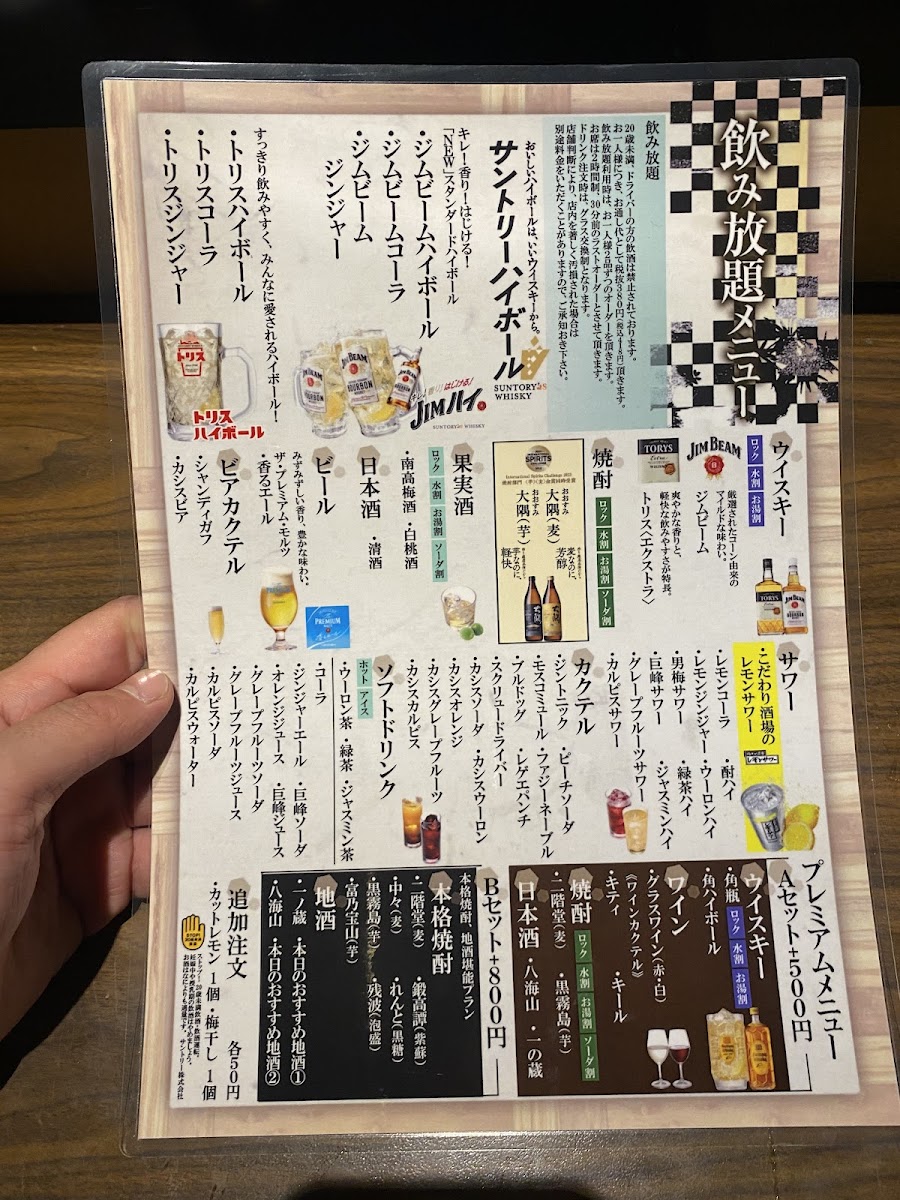 飲み放題メニュー
飲み放題
20歳未満、ドライバーの方の飲酒は禁止されております。
お一人様につき、お通し代として税抜380円(税込418円)頂きます。
飲み放題利用時は、お一人様2品ずつのオーダーを頂きます。
お席は2時間制、30分前のラストオーダーとさせて頂きます。
ドリンク注文時は、グラス交換制となります。
店舗判断により、店内を著しく汚損された場合は
別途料金をいただくことがありますので、ご承知おき下さい。
おいしいハイボールは、いいウイスキーから。
サントリーハイボール
SUNTORY WHISKY
キレ!香り!はじける!
「NEW」スタンダードハイボール
・ジムビームハイボール
・ジムビームコーラ
・ジムビーム
ジンジャー
JIM BEAM
BOURBON
キレ!香り!はじける!
JIMハイ
SUNTORY WHISKY
すっきり飲みやすく、みんなに愛されるハイボール!
・トリスハイボール
・トリスコーラ
・トリスジンジャー
トリス
トリス
ハイボール
ウイスキー
ロック 水割 お湯割
JIM BEAM
厳選されたコーン由来の
マイルドな味わい。
ジムビーム
TORYS
Extra
爽やかな香りと、
軽快な飲みやすさが特長。
トリス〈エクストラ〉
TORYS
JIM BEAM
焼酎
ロック 水割 お湯割 ソーダ割
SPIRITS
大隅(麦)
おおすみ
麦なのに、
芳醇
大隅(芋)
おおすみ
芋なのに、
軽快
果実酒
ロック 水割 お湯割 ソーダ割
・南高梅酒 ・白桃酒
日本酒
・清酒
ビール
みずみずしい香り、豊かな味わい。
ザ・プレミアム・モルツ
・香るエール
PREMIUM
ビアカクテル
・シャンディガフ
・カシスビア
サワー
・こだわり酒場の
レモンサワー
レモンサワー
・レモンコーラ ・酎ハイ
・レモンジンジャー ・ウーロンハイ
・男梅サワー ・緑茶ハイ
・巨峰サワー ・ジャスミンハイ
・グレープフルーツサワー
・カルピスサワー
カクテル
・ジントニック ・ピーチソーダ
・モスコミュール ・ファジーネーブル
・ブルドッグ ・レゲエパンチ
・スクリュードライバー
・カシスソーダ ・カシスウーロン
・カシスオレンジ
・カシスグレープフルーツ
・カシスカルピス
ソフトドリンク
ホット アイス
・ウーロン茶 ・緑茶 ・ジャスミン茶
・コーラ
・ジンジャーエール ・巨峰ソーダ
・オレンジジュース ・巨峰ジュース
・グレープフルーツソーダ
・グレープフルーツジュース
・カルピスソーダ
・カルピスウォーター
プレミアムメニュー
Aセット+500円
ウイスキー
・角瓶 ロック 水割 お湯割
・角ハイボール
ワイン
・グラスワイン(赤・白)
《ワインカクテル》
・キティ ・キール
焼酎
ロック 水割 お湯割 ソーダ割
・二階堂(麦) ・黒霧島(芋)
日本酒
・八海山 ・一の蔵
Bセット+800円
本格焼酎、地酒堪能プラン
本格焼酎
・二階堂(麦) ・鍛高譚(紫蘇)
・中々(麦) ・れんと(黒糖)
・黒霧島(芋) ・残波(泡盛)
・富乃宝山(芋)
地酒
・一ノ蔵 ・本日のおすすめ地酒①
・八海山 ・本日のおすすめ地酒②
追加注文 各50円
・カットレモン 1個 ・梅干し 1個
STOP!
ストップ!20歳未満飲酒・飲酒運転。
妊娠中や授乳期の飲酒はやめましょう。
お酒はなによりも適量です。 サントリー株式会社